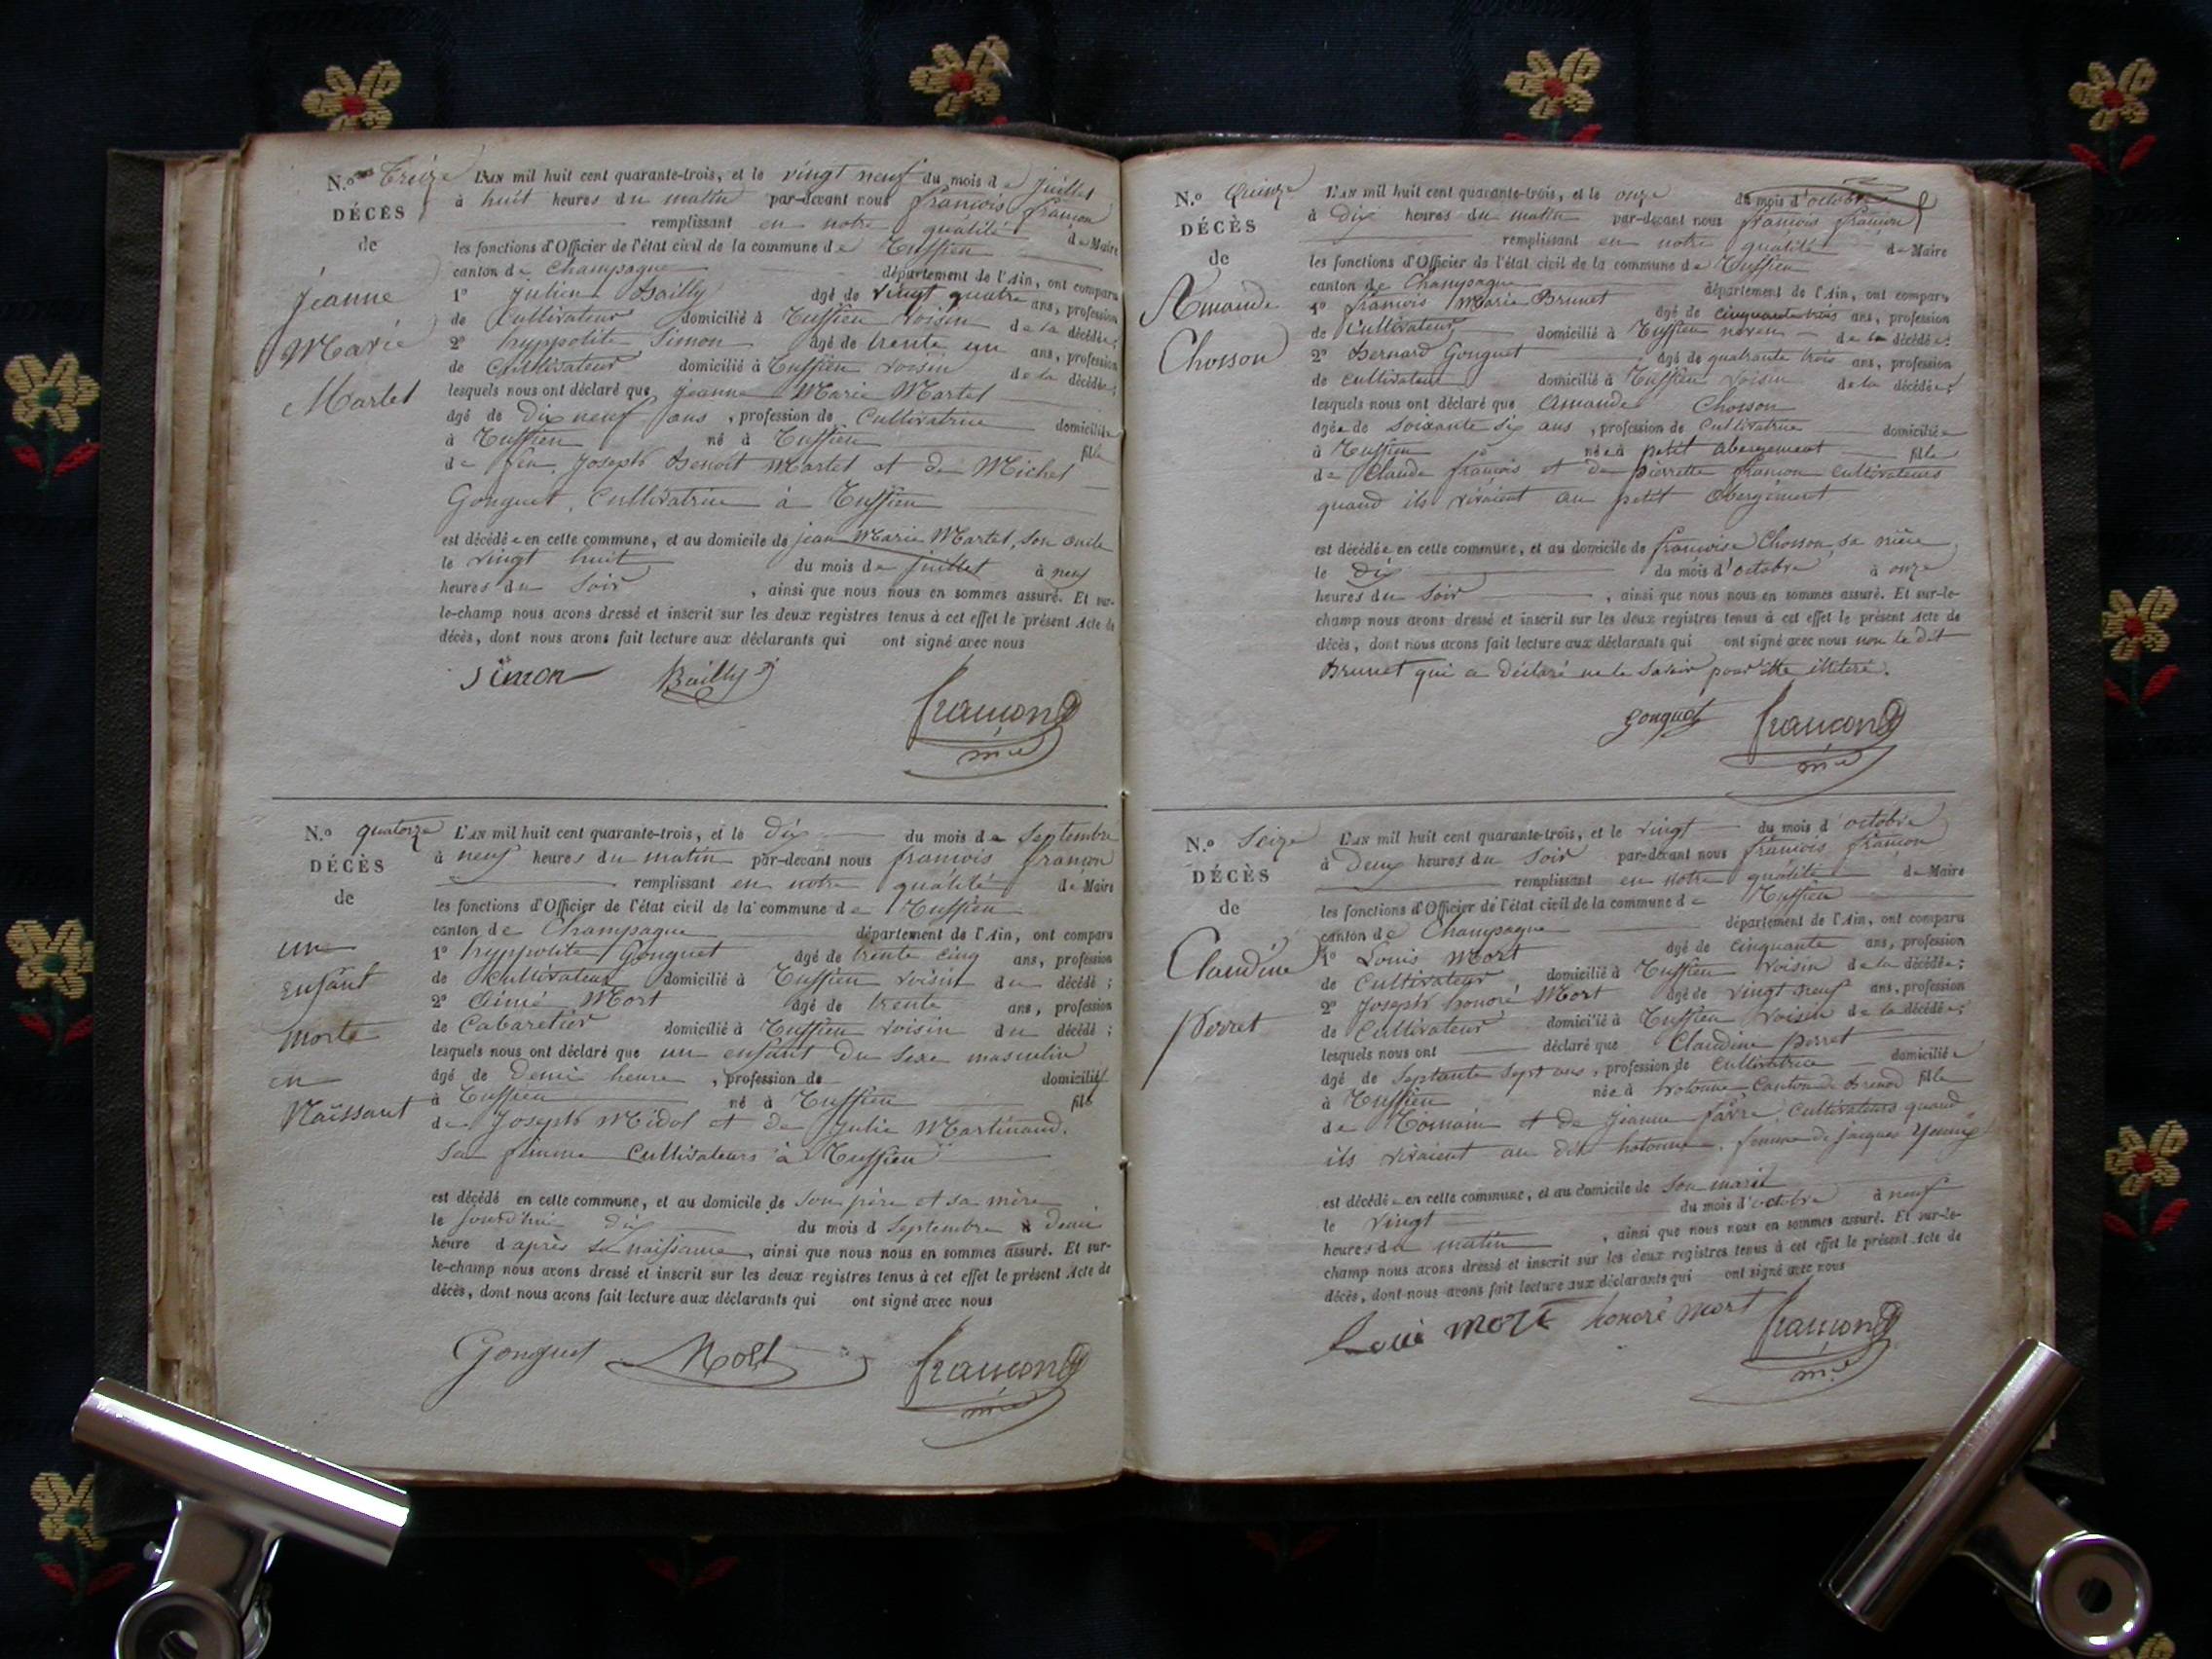 N.º Treize L'AN mil huit cent quarante-trois, et le vingt neuf du mois de juillet
DÉCÈS à huit heures du matin par-devant nous francois françon
remplissant en notre qualité de Maire
de les fonctions d'Officier de l'état civil de la commune de Tussieu
canton de Champagne département de l'Ain, ont comparu
Jeanne 1º Julien Bailly agé de vingt quatre ans, profession
de Cultivateur domicilié à Tussieu voisin de la décédée;
Marie 2º hyppolite Simon agé de trente un ans, profession
de Cultivateur domicilié à Tussieu voisin de la décédée;
Martel lesquels nous ont déclaré que jeanne Marie Martel
agé de Dix neuf ans, profession de Cultivatrice domiciliée
à Tussieu né à Tussieu fille
de feu Joseph Benoit Martel et de Michel
Gonguet, Cultivatrice à Tussieu
est décédée en cette commune, et au domicile de jean Marie Martel, son oncle
le vingt huit du mois de juillet à neuf
heures du soir, ainsi que nous nous en sommes assuré. Et sur-
le-champ nous avons dressé et inscrit sur les deux registres tenus à cet effet le présent Acte de
décès, dont nous avons fait lecture aux déclarants qui ont signé avec nous
Simon Bailly J françon
mre
N.º quatorze L'AN mil huit cent quarante-trois, et le Dix du mois de Septembre
DÉCÈS à neuf heures du matin par-devant nous francois françon
remplissant en notre qualité de Maire
de les fonctions d'Officier de l'état civil de la commune de Tussieu
canton de Champagne département de l'Ain, ont comparu
un 1º hyppolite Gonguet agé de trente cinq ans, profession
enfant de Cultivateur domicilié à Tussieu voisin du décédé;
2º Aimé Mort agé de trente ans, profession
morte de Cabaretier domicilié à Tussieu voisin du décédé;
lesquels nous ont déclaré que un enfant du Sexe masculin
en agé de Demi heure, profession de domicilié
Naissant à Tussieu né à Tussieu fils
de Joseph Midol et de Julie Martinand.
Sa femme Cultivateurs à Tussieu
est décédé en cette commune, et au domicile de Son père et sa mère
le jourd'hui dix du mois d Septembre à demi
heure d après sa naissance, ainsi que nous nous en sommes assuré. Et sur-
le-champ nous avons dressé et inscrit sur les deux registres tenus à cet effet le présent Acte de
décès, dont nous avons fait lecture aux déclarants qui ont signé avec nous
Gonguet Mort françon
mre
N.º Quinze L'AN mil huit cent quarante-trois, et le onze du mois d'octobre
DÉCÈS à Dix heures du matin par-devant nous francois françon
remplissant en notre qualité de Maire
de les fonctions d'Officier de l'état civil de la commune de Tussieu
canton de Champagne département de l'Ain, ont comparu
Amande 1º francois Marie Brunet agé de cinquante trois ans, profession
de Cultivateur domicilié à Tussieu neveu de la décédée;
Chosson 2º Bernard Gonguet agé de quatrante trois ans, profession
de cultivateur domicilié à Tussieu voisin de la décédée;
lesquels nous ont déclaré que Amande Chosson
agée de Soixante Six ans, profession de Cultivatrice domiciliée
à Tussieu née à petit abergement fille
de Claude françois et de pierrette françon cultivateurs
quand ils vivaient au petit abergement
est décédée en cette commune, et au domicile de françoise Chosson, sa nièce
le Dix du mois d'octobre à onze
heures du Soir, ainsi que nous nous en sommes assuré. Et sur-le-
champ nous avons dressé et inscrit sur les deux registres tenus à cet effet le présent Acte de
décès, dont nous avons fait lecture aux déclarants qui ont signé avec nous non le dit
Brunet qui a déclaré ne le savoir pour être illitéré.
gonguet françon
mre
N.º Seize L'AN mil huit cent quarante-trois, et le vingt du mois d'octobre
DÉCÈS à Deux heures du Soir par-devant nous francois françon
remplissant en notre qualité de Maire
de les fonctions d'Officier de l'état civil de la commune de Tussieu
canton de Champagne département de l'Ain, ont comparu
Claudine 1º Louis Mort agé de cinquante ans, profession
de Cultivateur domicilié à Tussieu voisin de la décédée;
2º Joseph honoré Mort agé de vingt neuf ans, profession
Perret de Cultivateur domicilié à Tussieu voisin de la décédée;
lesquels nous ont déclaré que Claudine perret
agé de Septante Sept ans, profession de Cultivatrice domiciliée
à Tussieu née à hotonne, Canton de Brenod fille
de Romain et de jeanne favre, Cultivateurs quand
ils vivaient au dit hotonne. femme de jacques
est décédée en cette commune, et au domicile de Son marit
le vingt du mois d'octobre à neuf
heures du matin, ainsi que nous nous en sommes assuré. Et sur-le-
champ nous avons dressé et inscrit sur les deux registres tenus à cet effet le présent Acte de
décès, dont nous avons fait lecture aux déclarants qui ont signé avec nous
Loui mort honoré mort françon
mre